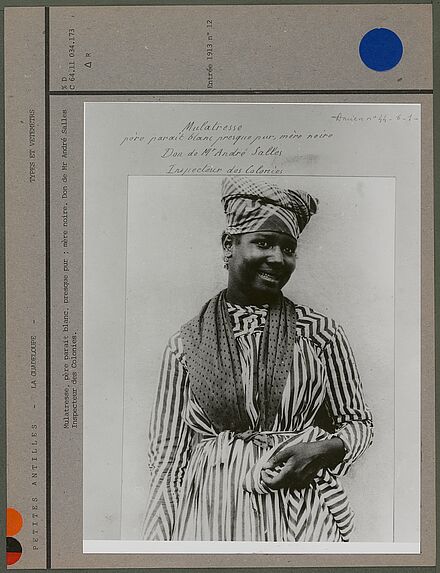 D
C 64.11 034.173
Δ R
Entrée 1913 n° 12
PETITES ANTILLES - LA GUADELOUPE - TYPES ET VETEMENTS
Mulatresse, père parait blanc, presque pur ; mère noire. Don de Mr André Salles
Inspecteur des Colonies.
Ancien n° 44-6-1-
Mulatresse
père parait blanc presque pur, mère noire
Don de Mr André Salles
Inspecteur des Colonies